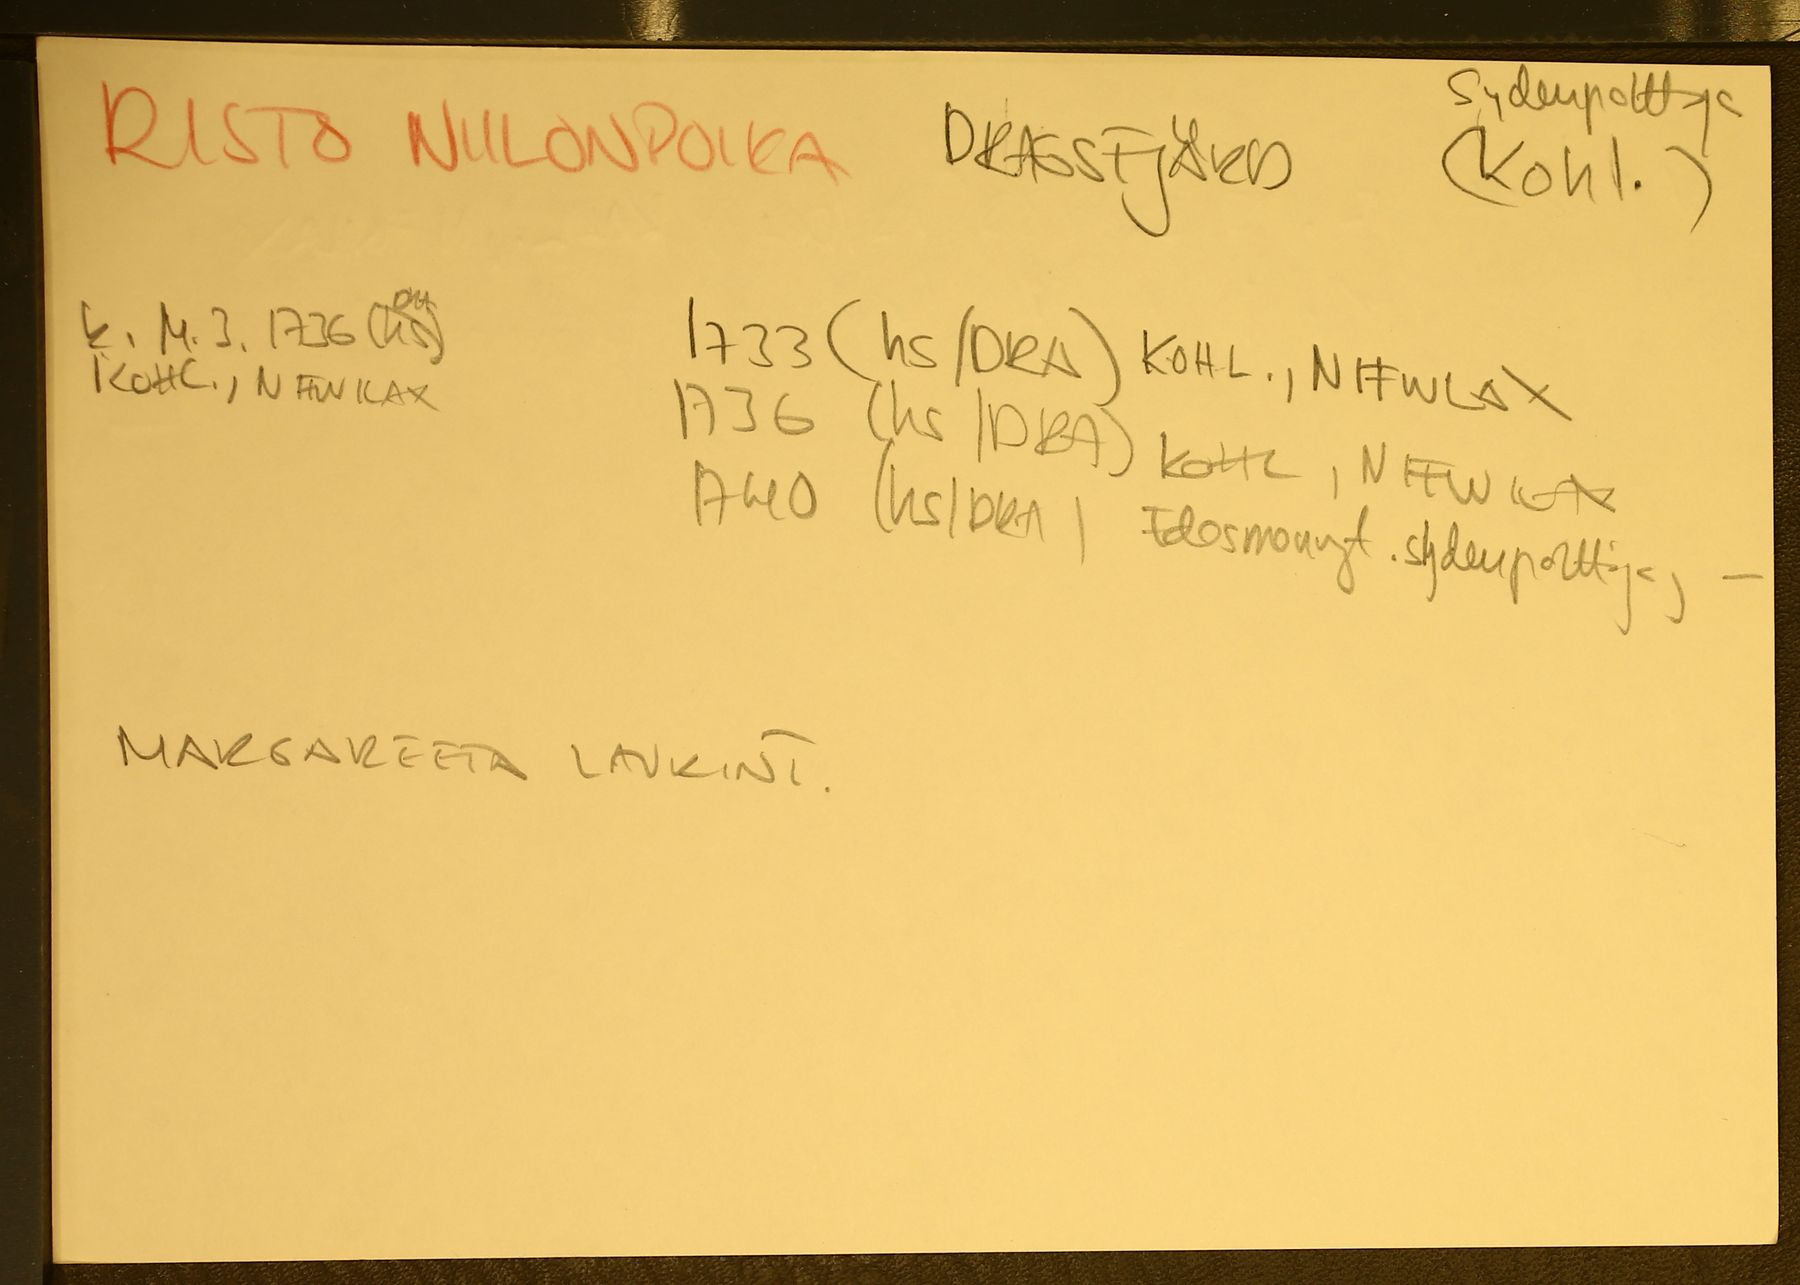 Sydenpolttaja
RISTO NIILONPOIKA DRAGSFJÄRD (Kohl.)
k. M.J. 1736 (hs) DRA
KOHL., NIEWLAX
1733 (hs/DRA) KOHL., NIEWLAX
1736 (hs/DRA) KOHL, NIEWLAX
1740 (hs/DRA) Edesmannyt. sydenpolttaja, —
MARGAREETA LAURINT.